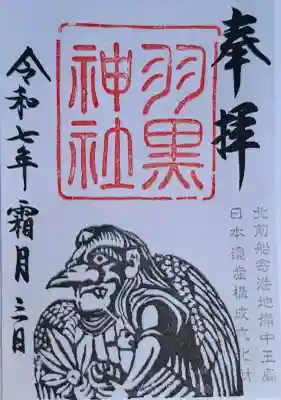 奉拝
北前船寄港地備中玉島
日本遺産構成文化財
羽黒
神社
令和七年 霜月 三日